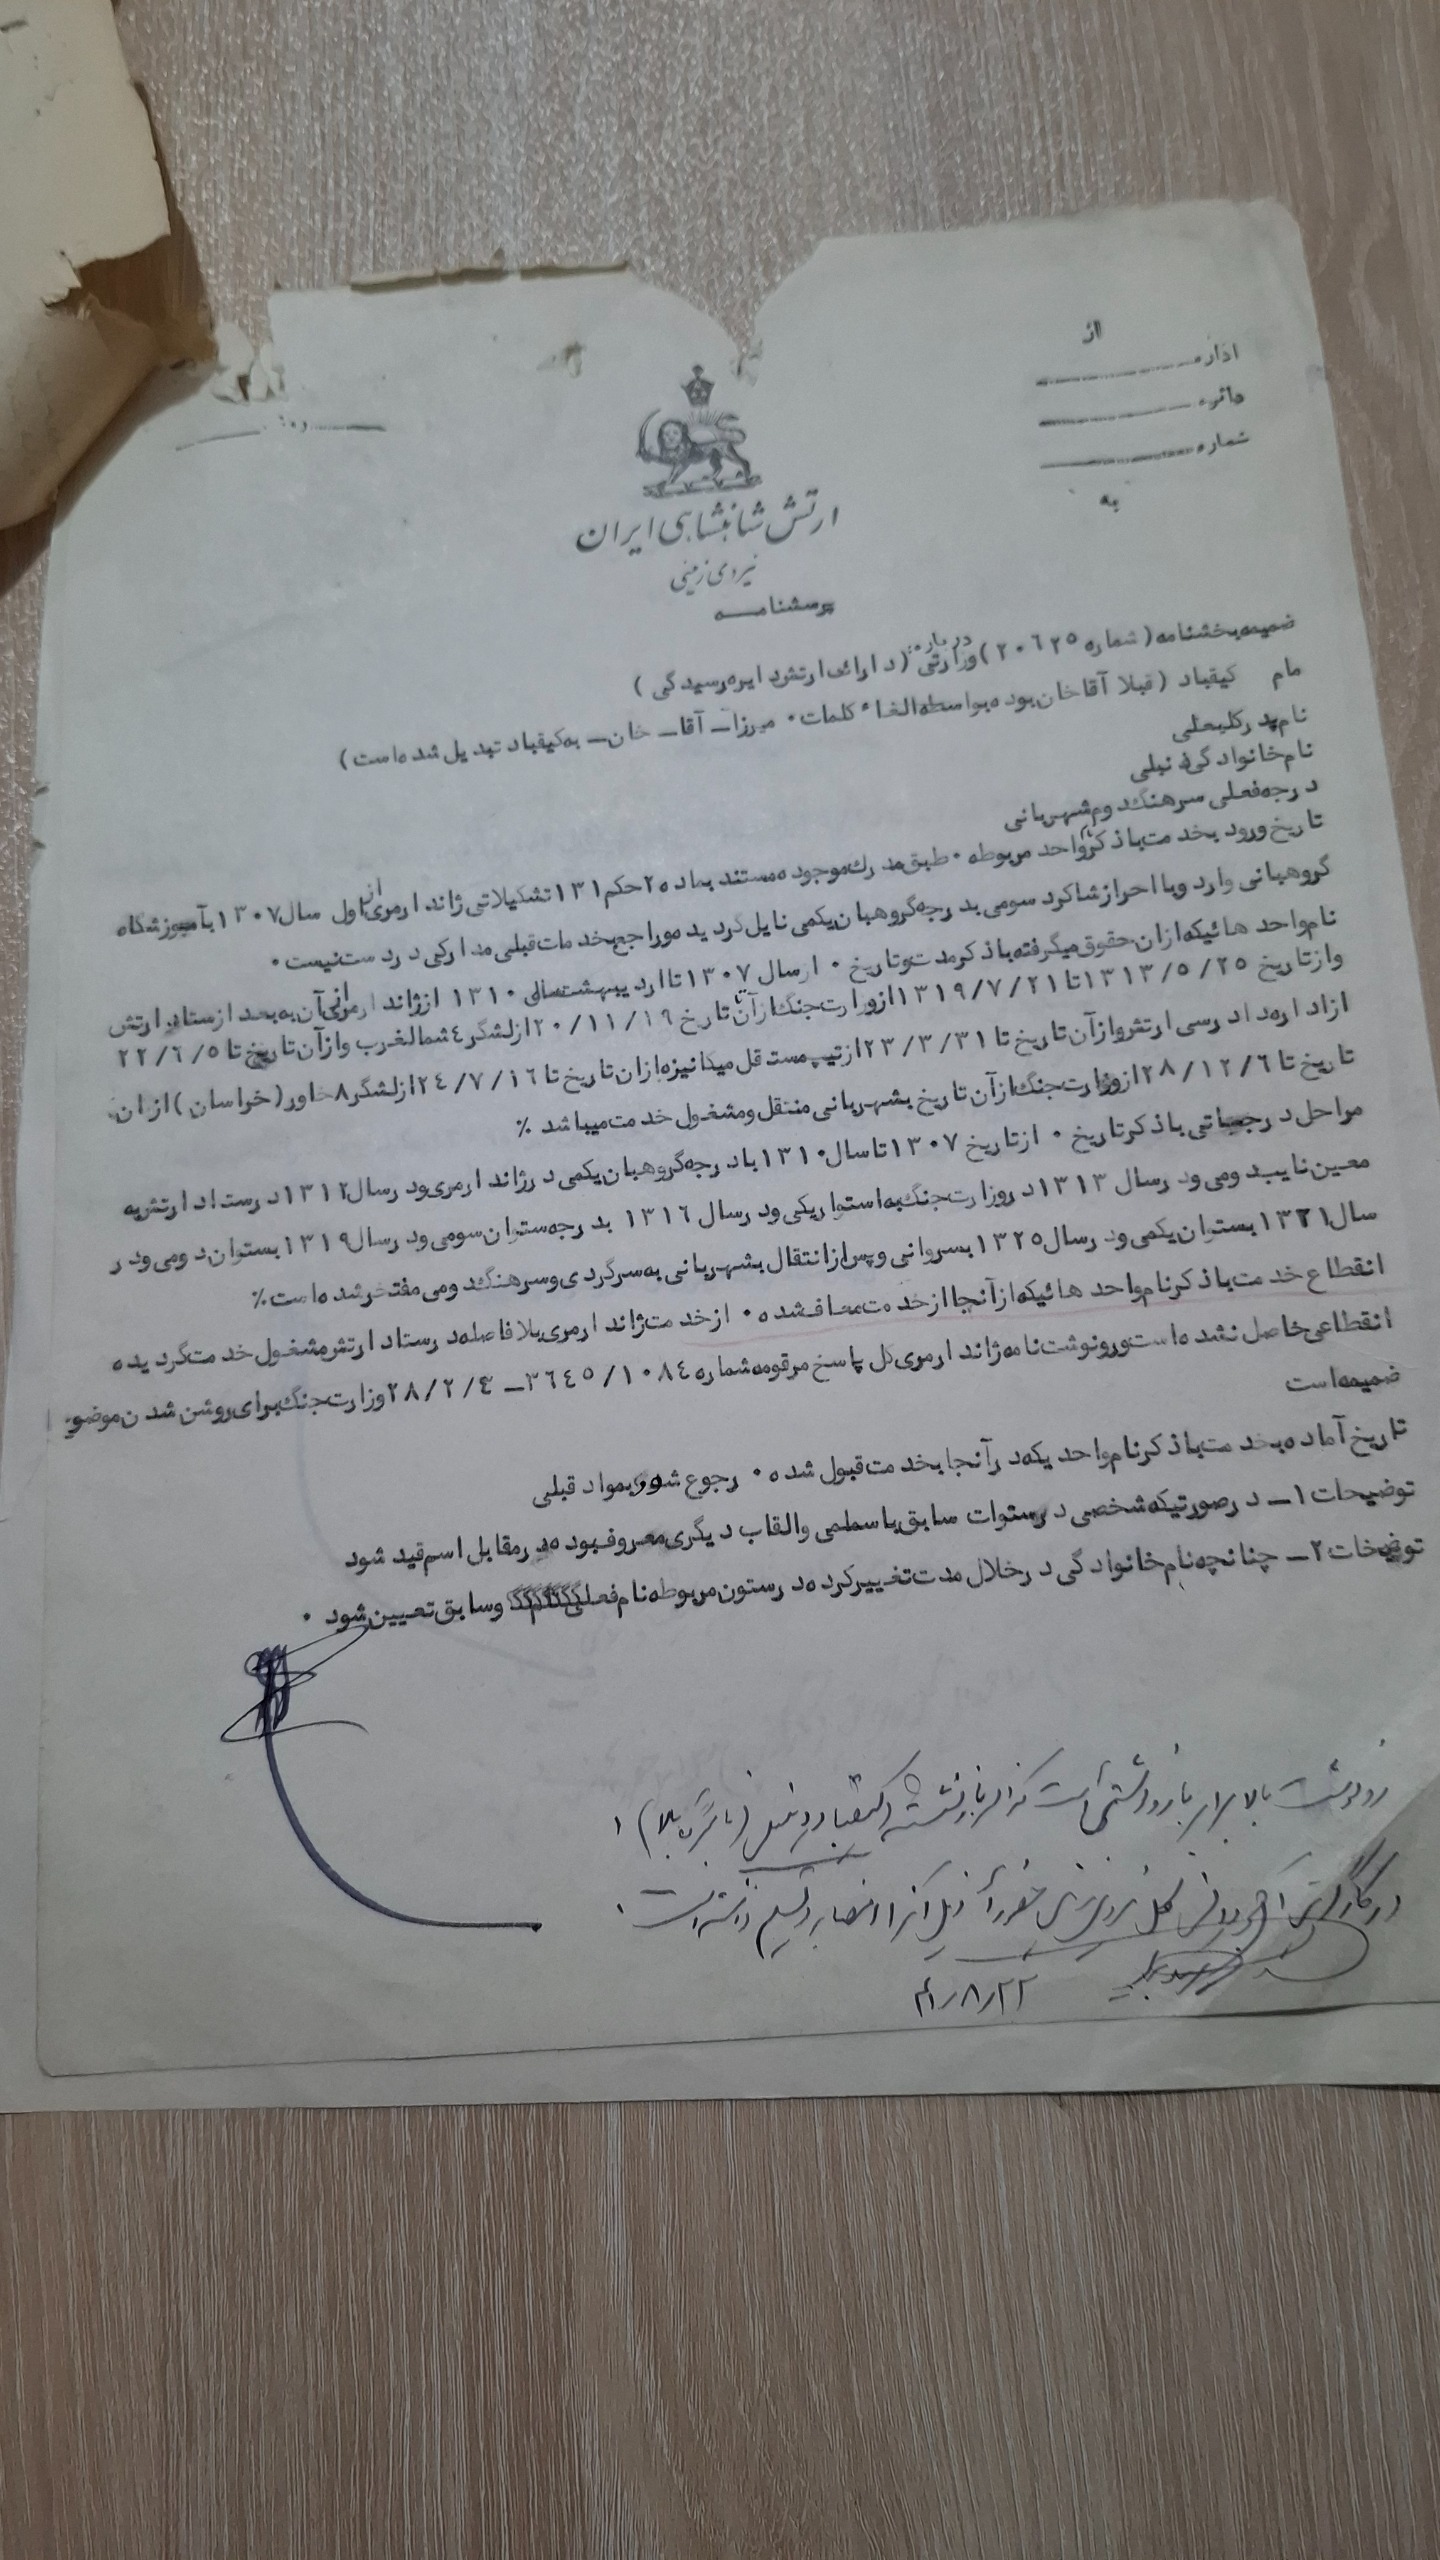 از
اداره
دائره
شماره
به
ارتش شاهنشاهی ایران
نیروی زمینی
پرسشنامه
ضمیمه بخشنامه (شماره ۲۰۶۲۵) وزارتی درباره: (دارائی ارتش دایره رسیدگی)
مام کیقباد (قبلا آقاخان بوده بواسطه الغاء کلمات۰ میرزا_ آقا_ خان_ به کیقباد تبدیل شده است)
نام پدر کلبعلی
نام خانوادگی
درجه فعلی سرهنگ دوم شهربانی
تاریخ ورود بخدمت با ذکر واحد مربوطه۰ طبق مدرك موجوده مستند بماده ۲ حکم ۱۳۱ تشکیلاتی ژاندارمری از اول سال ۱۳۰۷ بآموزشگاه
گروهبانی وارد و با احراز شاگرد سومی بدرجه گروهبان یکمی نایل گردیده و راجع بخدمات قبلی مدارکی در دست نیست۰
نام واحدهائیکه از ان حقوق میگرفته با ذکر مدت و تاریخ۰ از سال ۱۳۰۷ تا اردیبهشت سال ۱۳۱۰ از ژاندارمری آن به بعد از ستاد ارتش
و از تاریخ ۱۳۱۳/۵/۲۵ تا ۱۳۱۹/۷/۲۱ از وزارت جنگ از آن تا تاریخ ۲۰/۱۱/۱۹ از لشگر ٤ شمالغرب و از آن تاریخ تا ۲۲/۶/۵
از اداره دادرسی ارتش و از آن تاریخ تا ۲۳/۳/۳۱ از تیپ مستقل میکانیزه از ان تاریخ تا ۲٤/۷/۱۶ از لشگر ۸ خاور (خراسان) از ان
تاریخ تا ۲۸/۱۲/۶ از وزارت جنگ از آن تاریخ بشهربانی منتقل و مشغول خدمت میباشد ٪
مراحل درجاتی با ذکر تاریخ۰ از تاریخ ۱۳۰۷ تا سال ۱۳۱۰ با درجه گروهبان یکمی در ژاندارمری و در سال ۱۳۱۲ در ستاد ارتش به
معین نایب دومی و در سال ۱۳۱۳ در وزارت جنگ به استوار یکی و در سال ۱۳۱۶ بدرجه ستوان سومی و در سال ۱۳۱۹ بستوان دومی و در
سال ۱۳۲۱ بستوان یکمی و در سال ۱۳۲۵ بسروانی و پس از انتقال بشهربانی به سرگردی و سرهنگ دومی مفتخر شده است٪
انقطاع خدمت با ذکر نام واحدهائیکه از آنجا از خدمت معاف شده۰ از خدمت ژاندارمری بلافاصله در ستاد ارتش مشغول خدمت گردیده
انقطاعی حاصل نشده است و رونوشت نامه ژاندارمری کل پاسخ مرقومه شماره ۳۶٤۵/۱۰۸٤_ ۲۸/۲/٤ وزارت جنگ برای روشن شدن موضوع
ضمیمه است
تاریخ آماده بخدمت با ذکر نام واحدیکه در آنجا بخدمت قبول شده۰ رجوع شود بمواد قبلی
توضیحات ۱_ در صورتیکه شخصی در سنوات سابق باسامی و القاب دیگری معروف بوده در مقابل اسم قید شود
توضیحات ۲_ چنانچه نام خانوادگی در خلال مدت تغییر کرده در ستون مربوطه نام فعلی و سابق تعیین شود۰
رونوشت بالا برابر با رونوشتی است که
در کارگزینی
۴۱/۸/۲۲